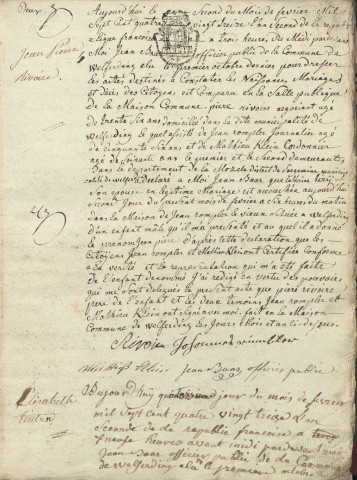 Deux
Jean Pierre
Rivoire
Aujourd'hui le Second du Mois de fevrier Mil
Sept Cent quatre vingt Treize L'an Second de la repub
lique francoise a trois heures du Midi pardevant
Moi Jean Baar officier public de la Commune de
Welferding elu le premier octobre dernier pour dresser
les actes destinés a Constater les Naissances Mariages
et décès des Citoyens est Comparu en la Salle publique
de la Maison Commune piere rivoire negociant agé
de trente Six ans domicilié dans la dite municipalité de
Welferding lequel assisté de Jean rompler Journalier agé
de Cinquante Six ans et de Mathieu Klein Cordonnier
agé de ans le premier et le Second demeurants
dans le departement de la Moselle district de Sarguemin
a Déclaré a Moi Jean Baar que
Son epouse en legitime Mariage est accouchée aujourd'hui
Second Jour du present mois de fevrier a Six heures du matin
dans la Maison de Jean rompler le vieux Située a welferding
d'un enfant male qu'il m'a presenté et au quel il a donné
le prenom Jean piere d'après cette declaration que les
Citoyens Jean rompler et Mathieu Klein ont Certifiée Conforme
a la verité et la representation qui m'a été faite
de l'enfant denommé j'ai redigé en vertu des pouvoirs
qui me sont delegués le present acte que piere rivoire
pere de l'enfant et les deux temoins Jean rompler et
Mathieu Klein ont signé avec moi. fait en la Maison
Commune de Welferding les Jour Mois et an Ci-dessus
Rivoire
Jean Baar officier public
Elisabeth
Aujourd'huy jour du mois de fevrier
mil sept cent quatre vingt treize l'an
Seconde de la republic francoise a
heures avant midi pardevant moi
Jean Baar officier public de la Commune
de Welferding elu le premier